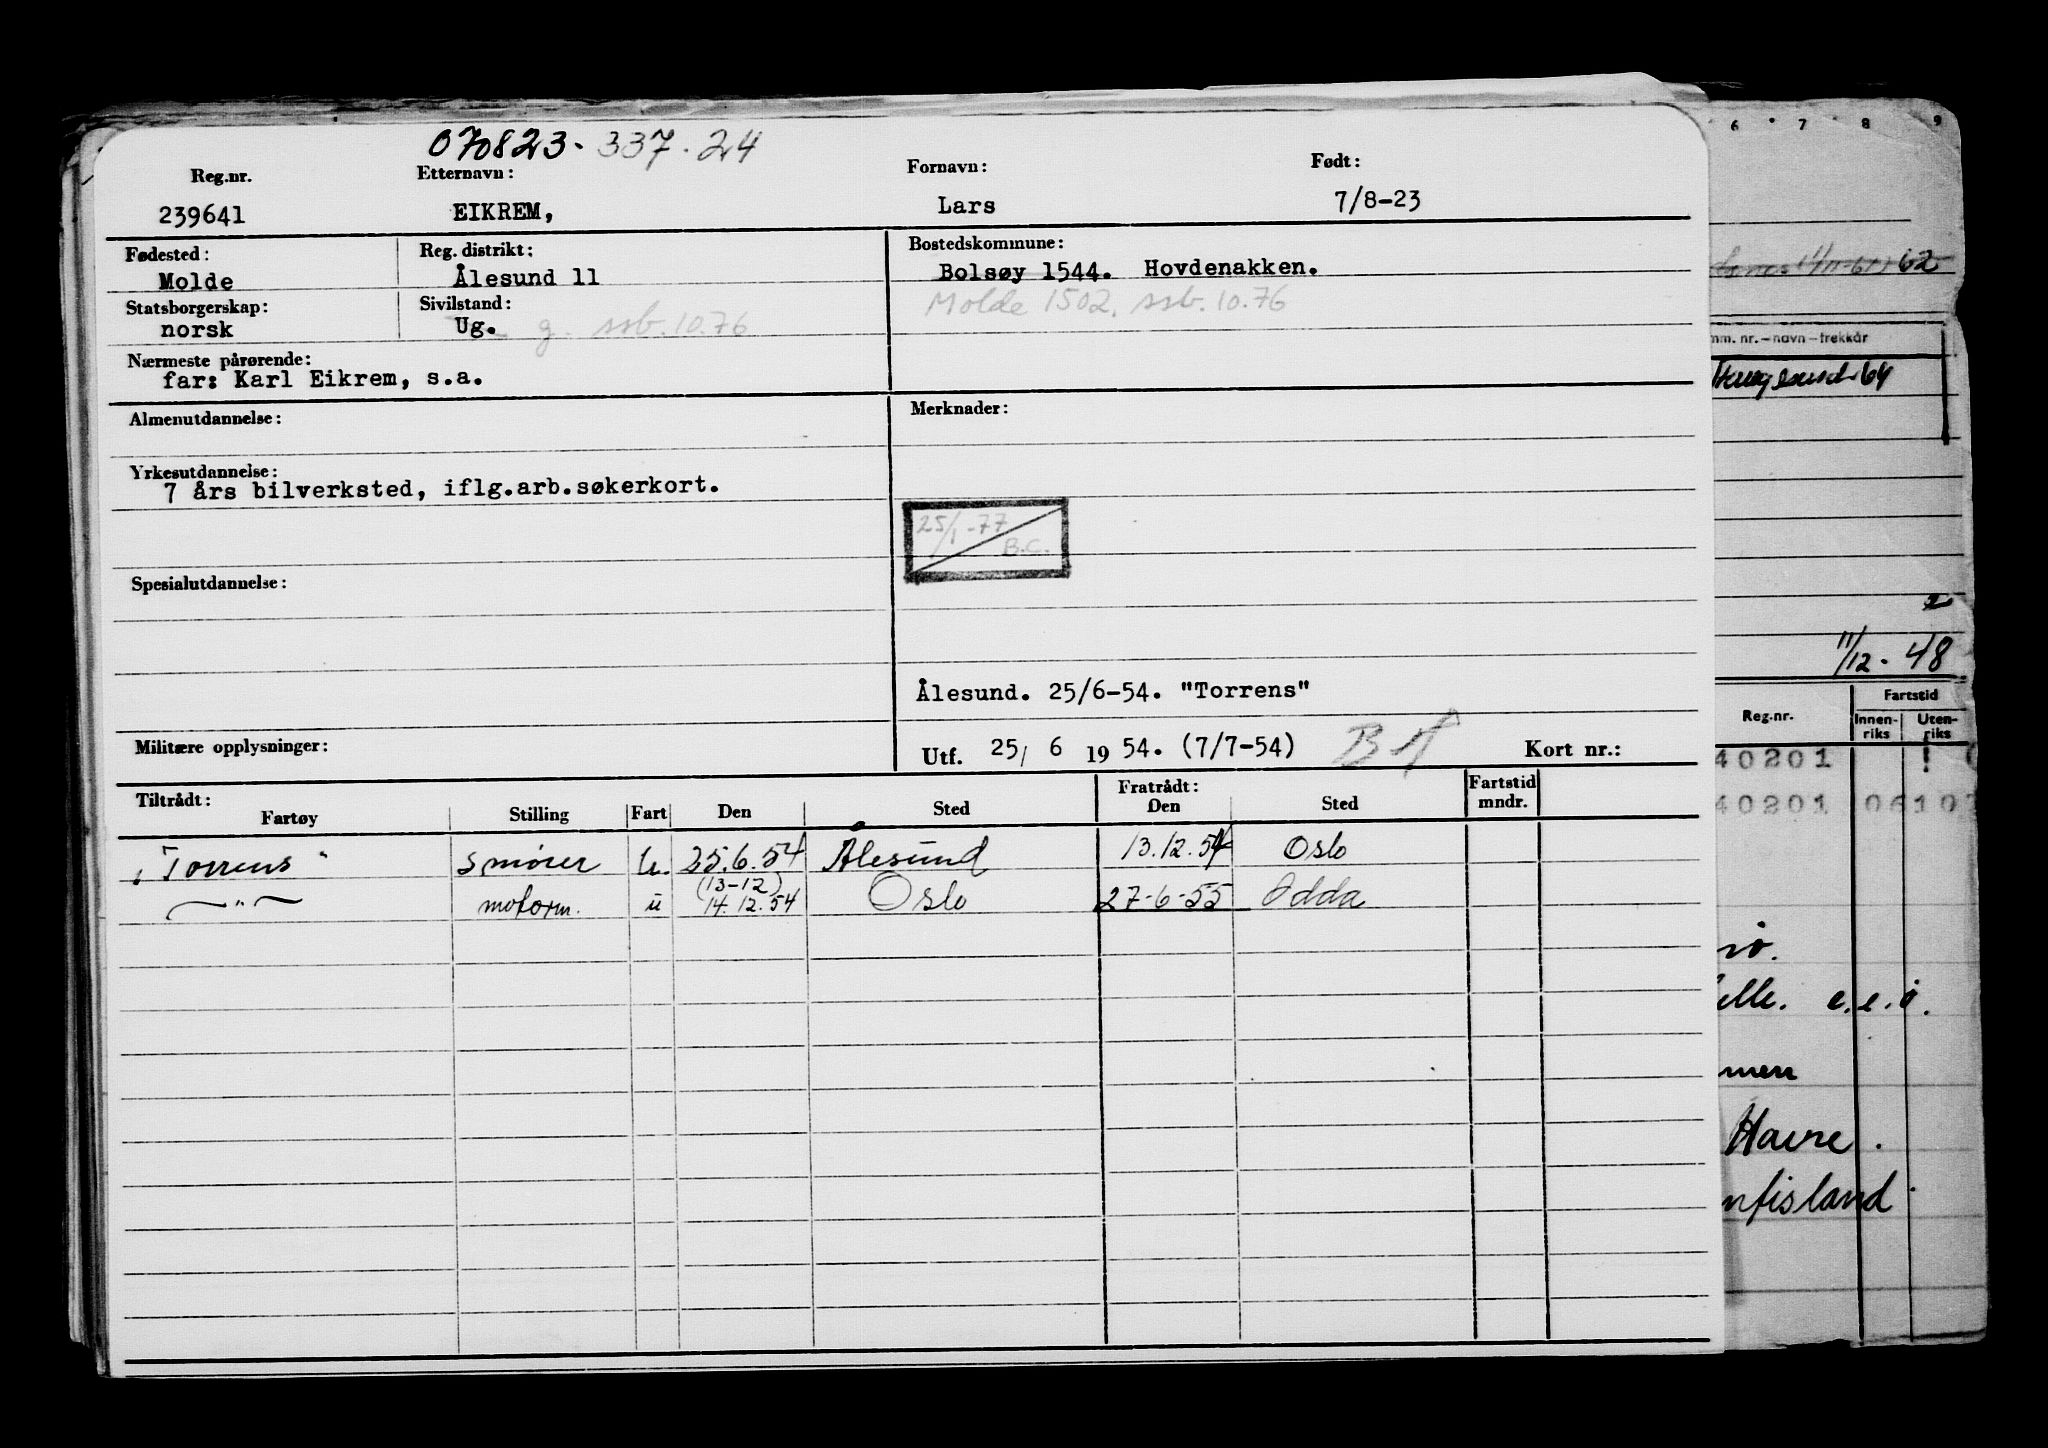 070823.337.24
Reg.nr. Etternavn: Fornavn: Født:
239641 EIKREM, Lars 7/8-23
Fødested: Reg. distrikt: Bostedskommune:
Molde Ålesund 11 Bolsøy 1544. Hovdenakken.
Statsborgerskap: Sivilstand: Molde 1502. ssb. 10.76
norsk Ug. g. ssb. 10.76
Nærmeste pårørende:
far: Karl Eikrem, s.a.
Almenutdannelse: Merknader:
Yrkesutdannelse:
7 års bilverksted, iflg.arb.søkerkort.
25/1-77
B.C.
Spesialutdannelse:
Ålesund. 25/6-54. "Torrens"
Militære opplysninger: Utf. 25/ 6 19 54. (7/7-54) Kort nr.:
Tiltrådt: Fratrådt: Fartstid
Fartøy Stilling Fart Den Sted Den Sted mndr.
"Torrens" smører u. 25.6.54 Ålesund 13.12.54 Oslo
(13-12)
—"— motorm. u 14.12.54 Oslo 27-6-55 Odda
6 7 8 9
62
mm. nr. – navn – trekkår
Haugesund 64
2
11/12-48
Reg.nr. Fartstid
Innen-riks Uten-riks
40201
40201 0610
elle. e.e.ø.
men
Havre.
nfisland